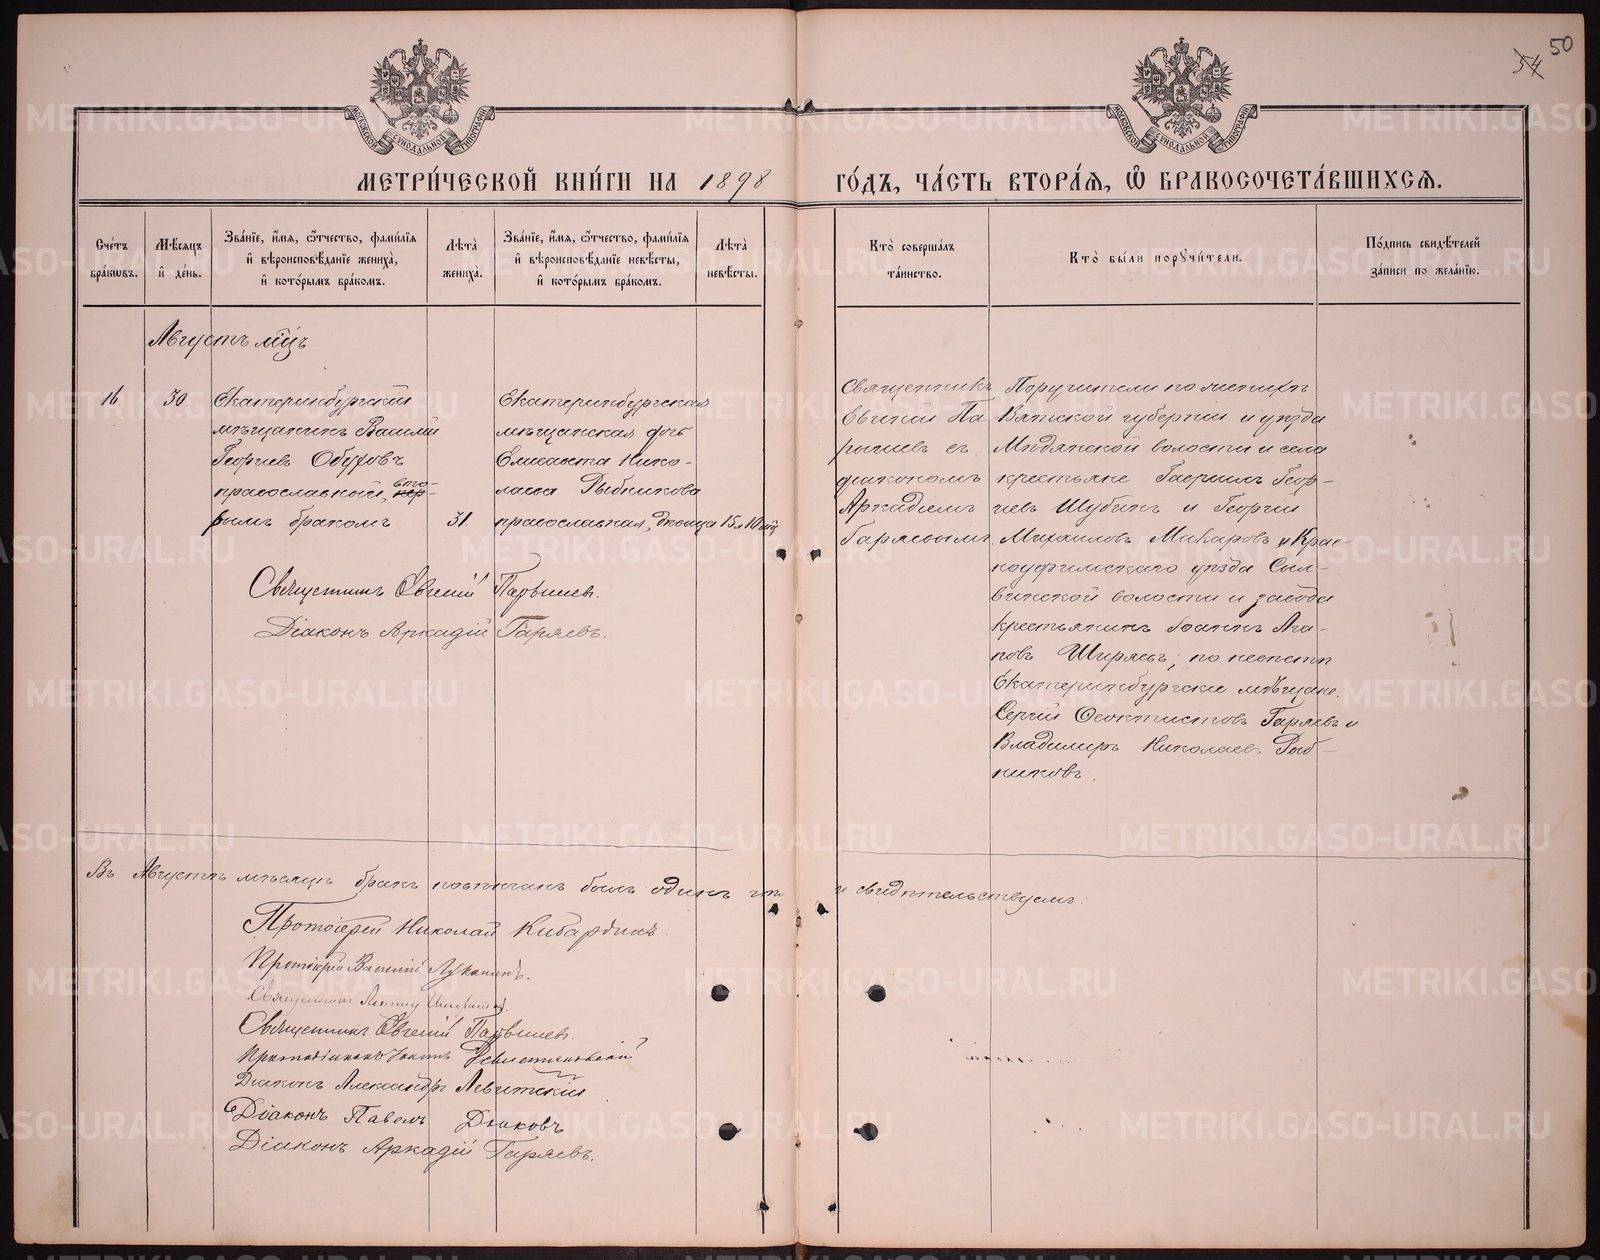 50
54
МОСКОВСКОЙ СѴНОДАЛЬНОЙ ТИПОГРАФІИ
МОСКОВСКОЙ СѴНОДАЛЬНОЙ ТИПОГРАФІИ
МЕТРИ́ЧЕСКОЙ КНИ́ГИ НА 1898 ГО́ДЪ, ЧА́СТЬ ВТОРА́Я, Ѽ БРАКОСОЧЕТА́ВШИХСЯ.
Сче́тъ
бра́кѡвъ.
Мѣ́сяцъ
и҆ де́нь.
Зва́нїе, и҆́мя, ѻ҆́тчество, фами́лїя
и҆ вѣроисповѣ́данїе жениха̀,
и҆ кото́рымъ бра́комъ.
Лѣта̀
жениха̀.
Зва́нїе, и҆́мя, ѻ҆́тчество, фами́лїя
и҆ вѣроисповѣ́данїе невѣ́сты,
и҆ кото́рымъ бра́комъ.
Лѣта̀
невѣ́сты.
Кто̀ соверша́лъ
та́инство.
Кто̀ бы́ли порꙋчи́тели.
По́дпись свидѣ́телей
за́писи по жела́нїю.
Августъ мцъ
16
30
Екатеринбургскій
мѣщанинъ Василій
Георгіевъ Обуховъ
православный, вто-
рымъ бракомъ
31
Екатеринбургская
мѣщанская дочь
Елисавета Нико-
лаева Рыбникова
православная, дѣвица
Священникъ
Евгеній Па
рышевъ съ
діакономъ
Аркадіемъ
Гаряевымъ.
Поручители по женихѣ
Вятской губерніи и уѣзда
Мѣдянской волости и села
крестьяне Гавріилъ Геор-
гіевъ Шубинъ и Георгій
Михаиловъ Макаровъ и Крас-
ноуфимскаго уѣзда Сыл-
винской волости и завода
крестьянинъ Іоаннъ Ага-
повъ Ширяевъ; по невѣстѣ
Екатеринбургскіе мѣщане
Сергій Ѳеоктистовъ Гаряевъ и
Владимиръ Николаевъ Рыб-
никовъ.
Священникъ Евгеній Парышевъ.
Діаконъ Аркадій Гаряевъ.
Въ Августѣ мѣсяцѣ бракъ повѣнчанъ былъ одинъ что и свидѣтельствуемъ:
Протоіерей Николай Кибардинъ.
Протоіерей Василій Луканинъ.
Священникъ
Священникъ Евгеній Парышевъ.
Протодіаконъ Іоаннъ
Діаконъ Александръ Левитскій
Діаконъ Павелъ Дьяковъ
Діаконъ Аркадій Гаряевъ.
METRIKI.GASO-URAL.RU